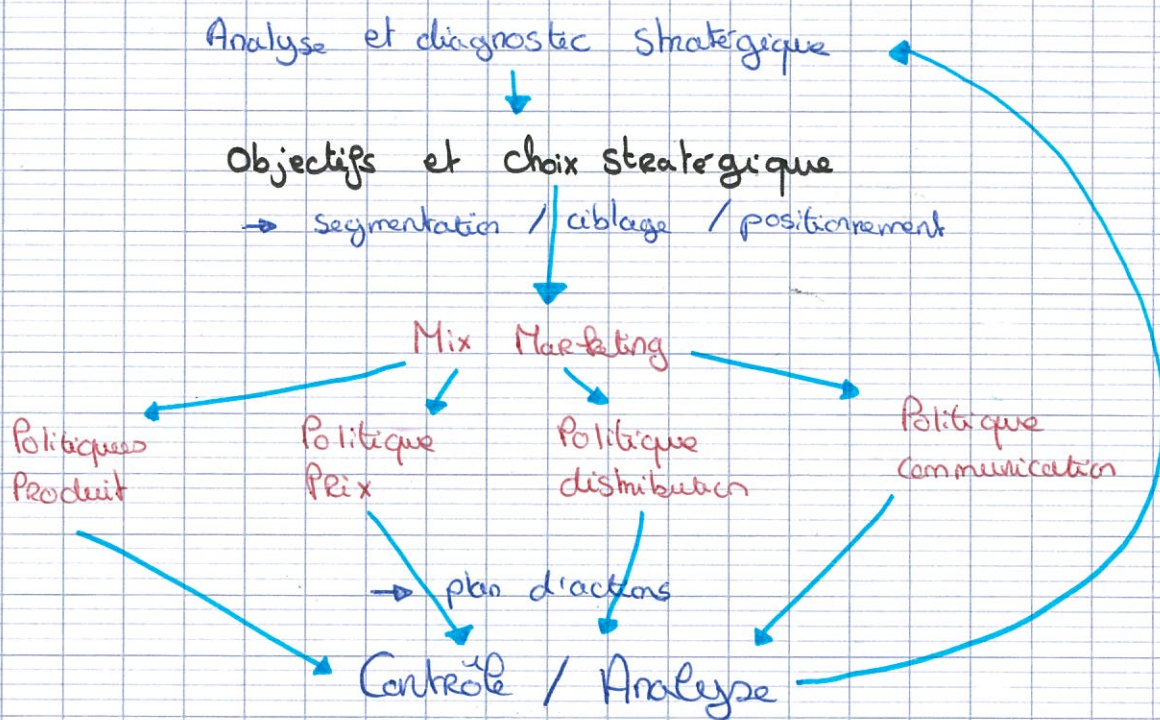 Analyse et diagnostic stratégique
Objectifs et choix stratégique
→ segmentation / ciblage / positionnement
Mix Marketing
Politiques Produit
Politique Prix
Politique distribution
Politique communication
→ plan d'actions
Contrôle / Analyse